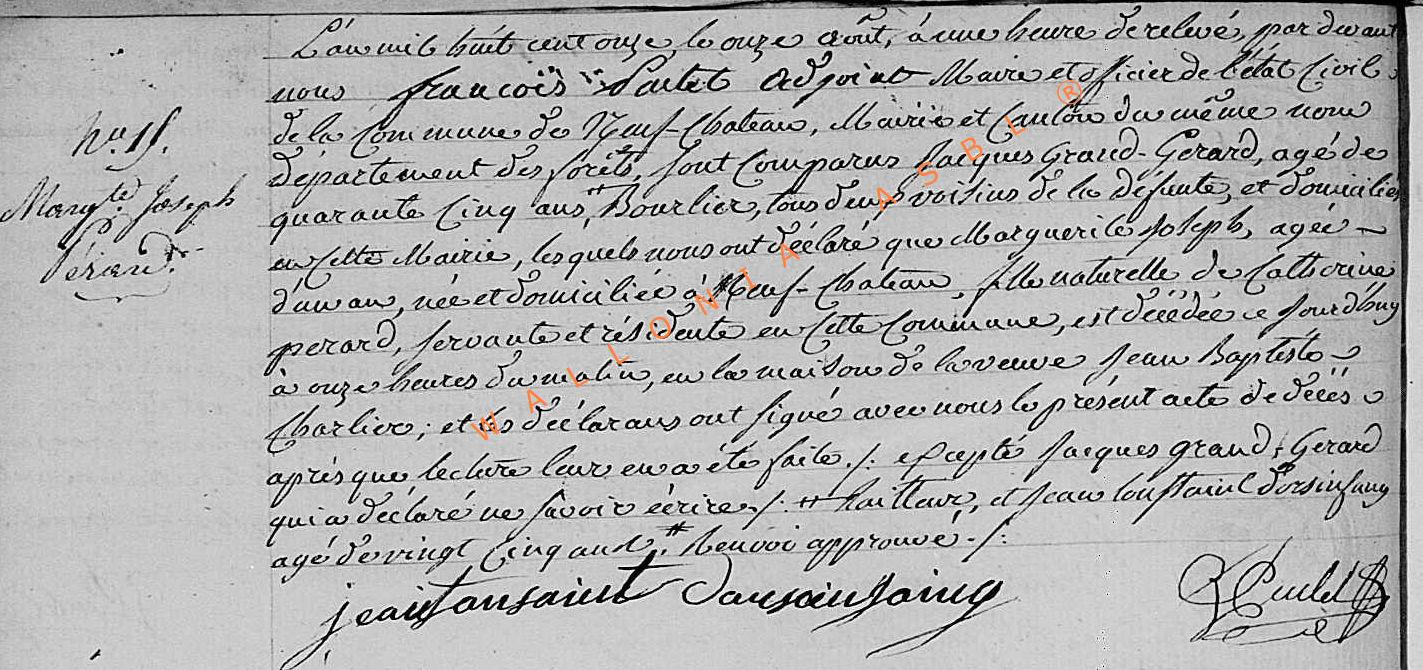 L'an mil huit cent onze, le onze août, à une heure de relevé, par devant
nous françois Poulet adjoint Maire et officier de l'état Civil
de la Commune de Neuf-Chateau, Mairie et Canton du même nom
département des forêts, sont Comparus Jacques Grand-Gerard, agé de
quarante Cinq ans, # Bourlier, tous deux voisins de la défunte, et domiciliés
N.° 15.
Marg.te Joseph
Pérard.
en Cette Mairie, lesquels nous ont déclaré que Marguerite Joseph, agée
d'un an, née et domiciliée à Neuf-Chateau, fille naturelle de Catherine
perard, servante et résidente en Cette Commune, est décédée ce jourd'huy
à onze heures du matin, en la maison de la veuve Jean Baptiste
Charlier; et les déclarans ont signé avec nous le présent acte de décès
après que lecture leur en a été faite ./. excepté Jacques grand-Gerard
qui a déclaré ne savoir écrire ./. # et Jean
agé de vingt Cinq ans. # Renvoi approuvé ./.
jean
WALLONIA ASBL ®